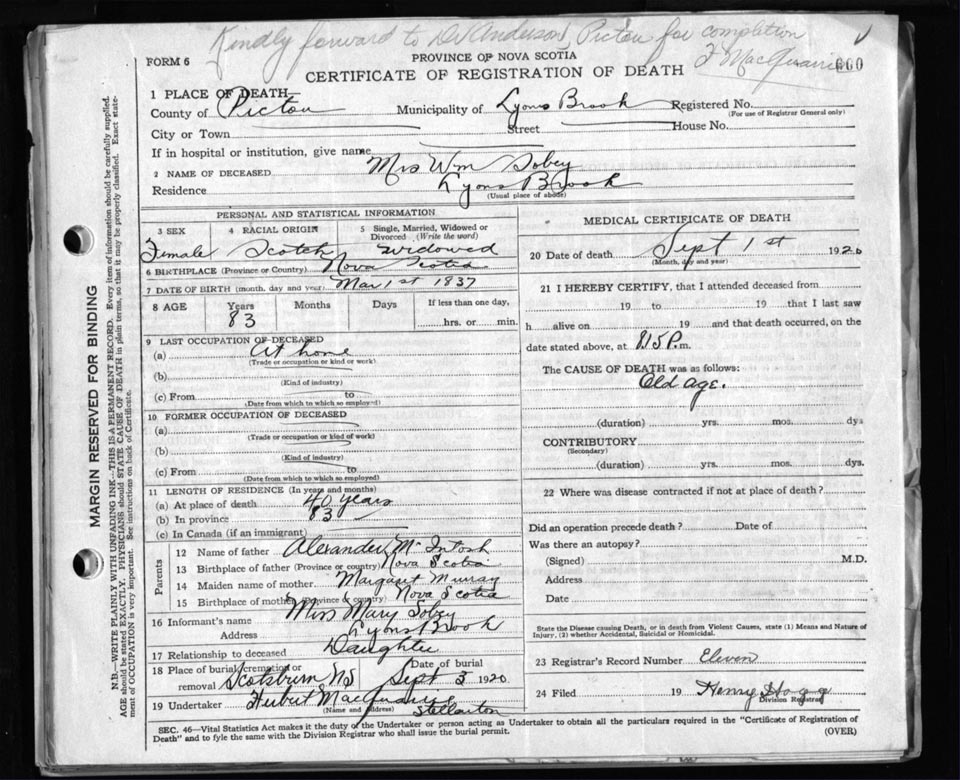 Kindly forward to Dr Anderson, Pictou for completion
FORM 6
PROVINCE OF NOVA SCOTIA
CERTIFICATE OF REGISTRATION OF DEATH
1 PLACE OF DEATH—
County of Pictou Municipality of Lyons Brook Registered No.
(For use of Registrar General only)
City or Town Street House No.
If in hospital or institution, give name
2 NAME OF DECEASED Mrs Wm Sobey
Residence Lyons Brook
(Usual place of abode)
PERSONAL AND STATISTICAL INFORMATION
3 SEX 4 RACIAL ORIGIN 5 Single, Married, Widowed or Divorced (Write the word)
Female Scotch widowed
6 BIRTHPLACE (Province or Country) Nova Scotia
7 DATE OF BIRTH (month, day and year) Mar 1st 1837
8 AGE Years Months Days If less than one day,
83 hrs. or min.
9 LAST OCCUPATION OF DECEASED
(a) At home
(Trade or occupation or kind of work)
(b)
(Kind of industry)
(c) From to
(Date from which to which so employed)
10 FORMER OCCUPATION OF DECEASED
(a)
(Trade or occupation or kind of work)
(b)
(Kind of industry)
(c) From to
(Date from which to which so employed)
11 LENGTH OF RESIDENCE (In years and months)
(a) At place of death 40 years
(b) In province 83
(c) In Canada (if an immigrant)
Parents
12 Name of father Alexander McIntosh
13 Birthplace of father (Province or country) Nova Scotia
14 Maiden name of mother Margaret Murray
15 Birthplace of mother (Province or country) Nova Scotia
16 Informant's name Miss Mary Sobey
Address Lyons Brook
17 Relationship to deceased Daughter
18 Place of burial, cremation or Date of burial
removal Scotsburn NS Sept 3 1920
19 Undertaker
(Name and address) Stellarton
MEDICAL CERTIFICATE OF DEATH
20 Date of death Sept 1st 1920
(Month, day and year)
21 I HEREBY CERTIFY, that I attended deceased from
19 to 19 that I last saw
h alive on 19 and that death occurred, on the
date stated above, at 8.15 P.m.
The CAUSE OF DEATH was as follows:
Old age.
(duration) yrs. mos. dys
CONTRIBUTORY
(Secondary)
(duration) yrs. mos. dys.
22 Where was disease contracted if not at place of death?
Did an operation precede death? Date of
Was there an autopsy?
(Signed) M.D.
Address
Date
State the Disease causing Death, or in death from Violent Causes, state (1) Means and Nature of
Injury, (2) whether Accidental, Suicidal or Homicidal.
23 Registrar's Record Number Eleven
24 Filed 19 Henry Hogg
Division Registrar
SEC. 46—Vital Statistics Act makes it the duty of the Undertaker or person acting as Undertaker to obtain all the particulars required in the "Certificate of Registration of
Death" and to fyle the same with the Division Registrar who shall issue the burial permit. (OVER)
MARGIN RESERVED FOR BINDING
N.B.—WRITE PLAINLY WITH UNFADING INK—THIS IS A PERMANENT RECORD. Every item of information should be carefully supplied.
AGE should be stated EXACTLY. PHYSICIANS should STATE CAUSE OF DEATH in plain terms, so that it may be properly classified. Exact state-
ment of OCCUPATION is very important. See instructions on back of Certificate.